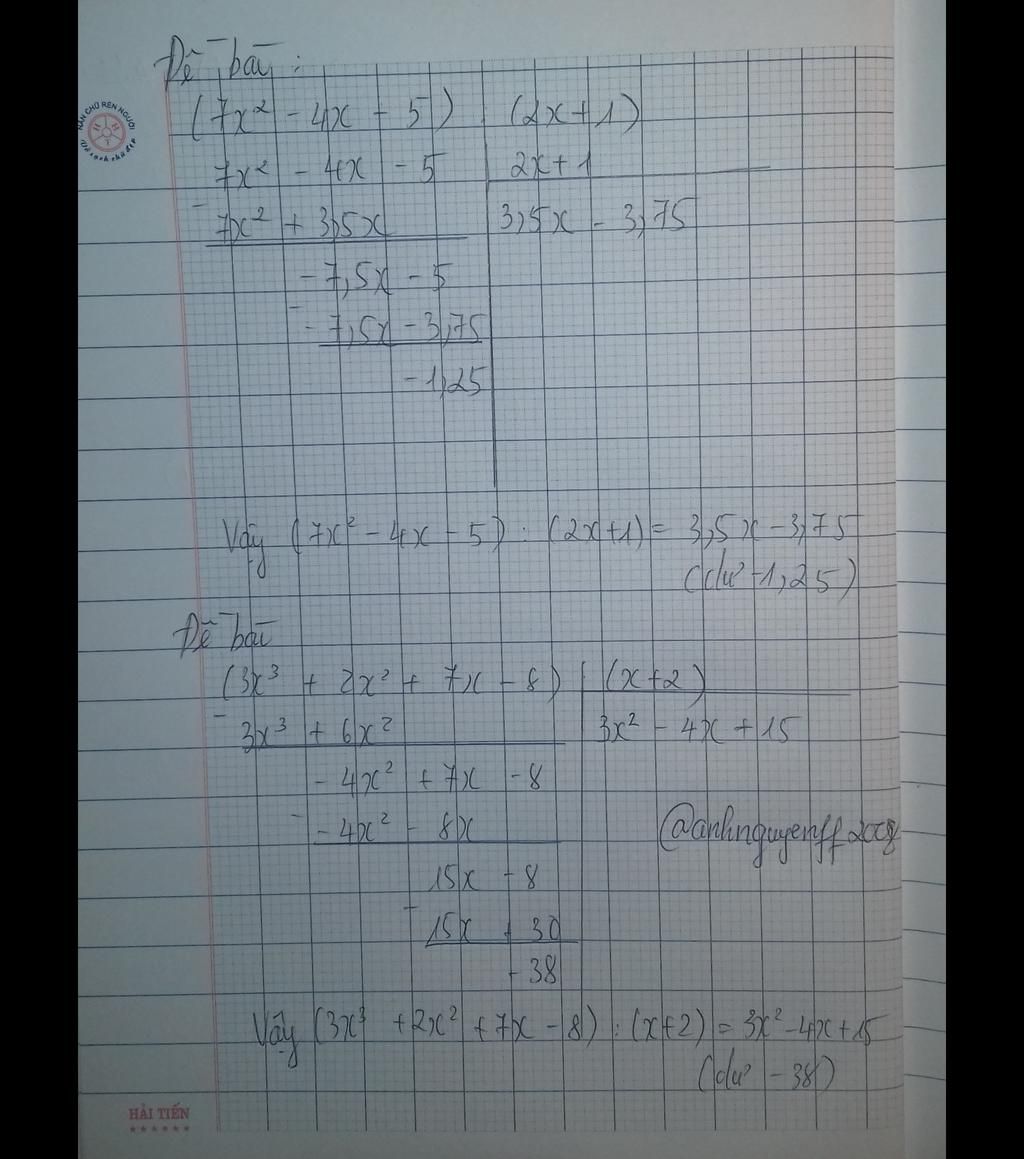 Đề bài :
(7x² - 4x - 5) : (2x + 1)
7x² - 4x - 5 2x + 1
- 7x² + 3,5x 3,5x - 3,75
- 7,5x - 5
- - 7,5x - 3,75
- 1,25
Vậy (7x² - 4x - 5) : (2x + 1) = 3,5x - 3,75
(dư -1,25)
Đề bài
(3x³ + 2x² + 7x - 8) : (x+2)
- 3x³ + 6x² 3x² - 4x + 15
- 4x² + 7x - 8
- - 4x² - 8x
@anhnguyenff2008
15x - 8
- 15x + 30
- 38
Vậy (3x³ + 2x² + 7x - 8) : (x+2) = 3x² - 4x + 15
(dư - 38)
HẢI TIẾN